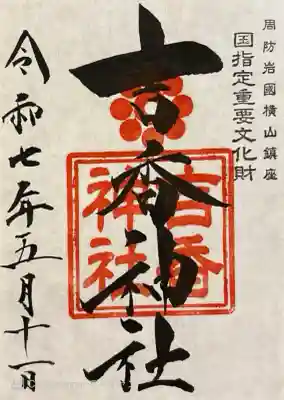 周防岩國横山鎮座
国指定重要文化財
吉香神社
吉香
神社
令和七年五月十一日